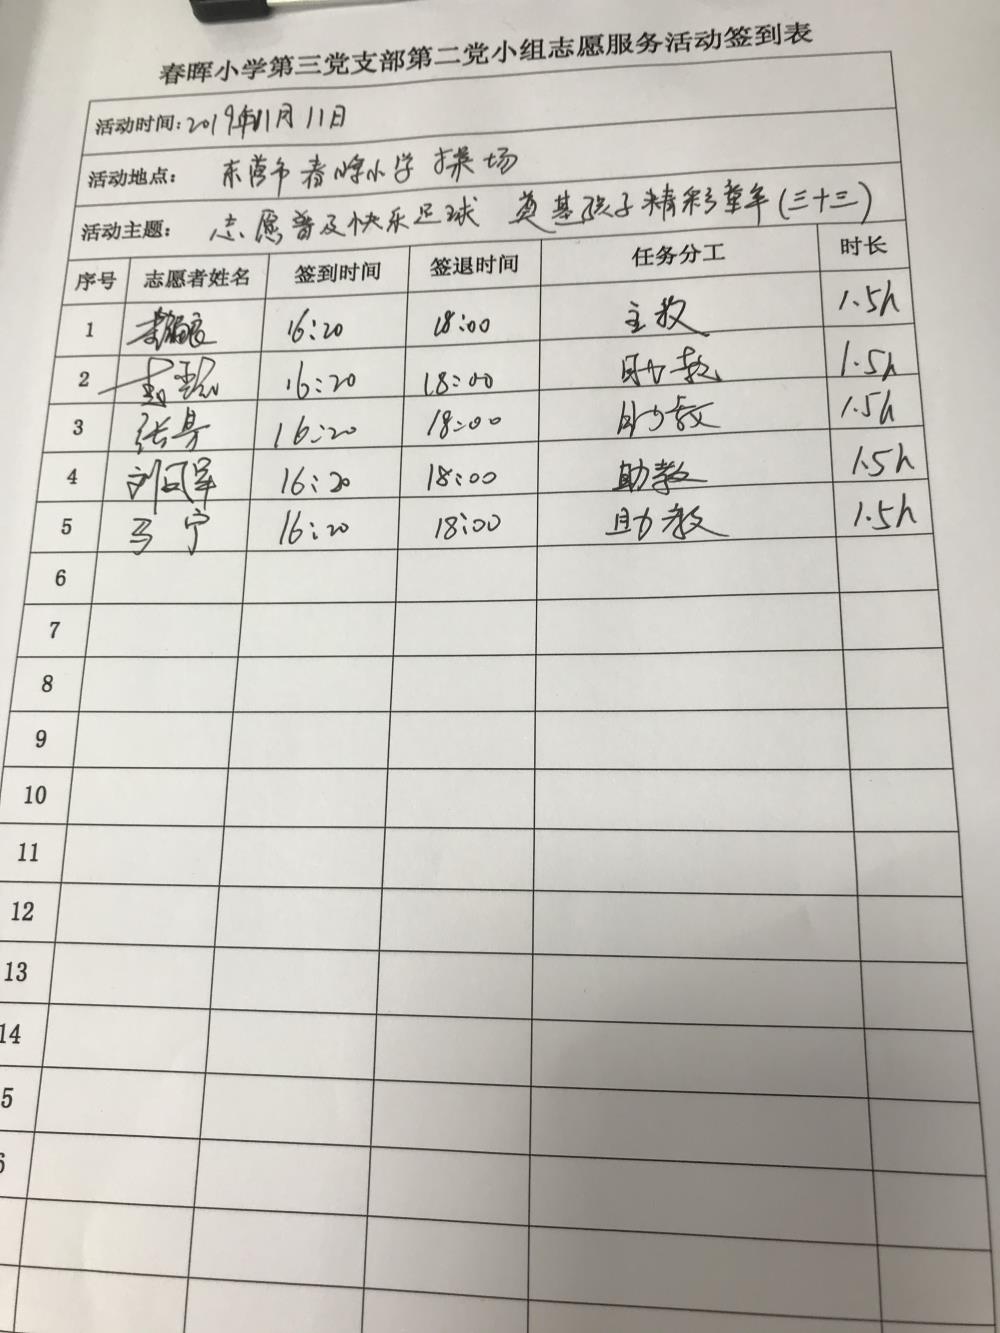 春晖小学第三党支部第二党小组志愿服务活动签到表
活动时间:2019年11月11日
活动地点: 东营市春晖小学 操场
活动主题: 志愿普及快乐足球 奠基孩子精彩童年(三十三)
序号 志愿者姓名 签到时间 签退时间 任务分工 时长
1 16:20 18:00 主教 1.5h
2 16:20 18:00 助教 1.5h
3 16:20 18:00 助教 1.5h
4 16:20 18:00 助教 1.5h
5 马宁 16:20 18:00 助教 1.5h
6
7
8
9
10
11
12
13
14
5
6